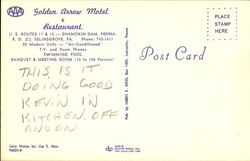 AAA
Golden Arrow Motel
&
Restaurant
U. S. ROUTES 11 & 15 — SHAMOKIN DAM, PENNA.
R. D. #2, SELINSGROVE, PA. Phone: 743-1611
30 Modern Units — "Air-Conditioned"
T.V. and Room Phones
SWIMMING POOL
BANQUET & MEETING ROOM
THIS IS IT
DOING GOOD
KEVIN IN
KITCHEN OFF
AND ON
Color Photos by: Jim E. Hess
Post Card
PLACE
STAMP
HERE